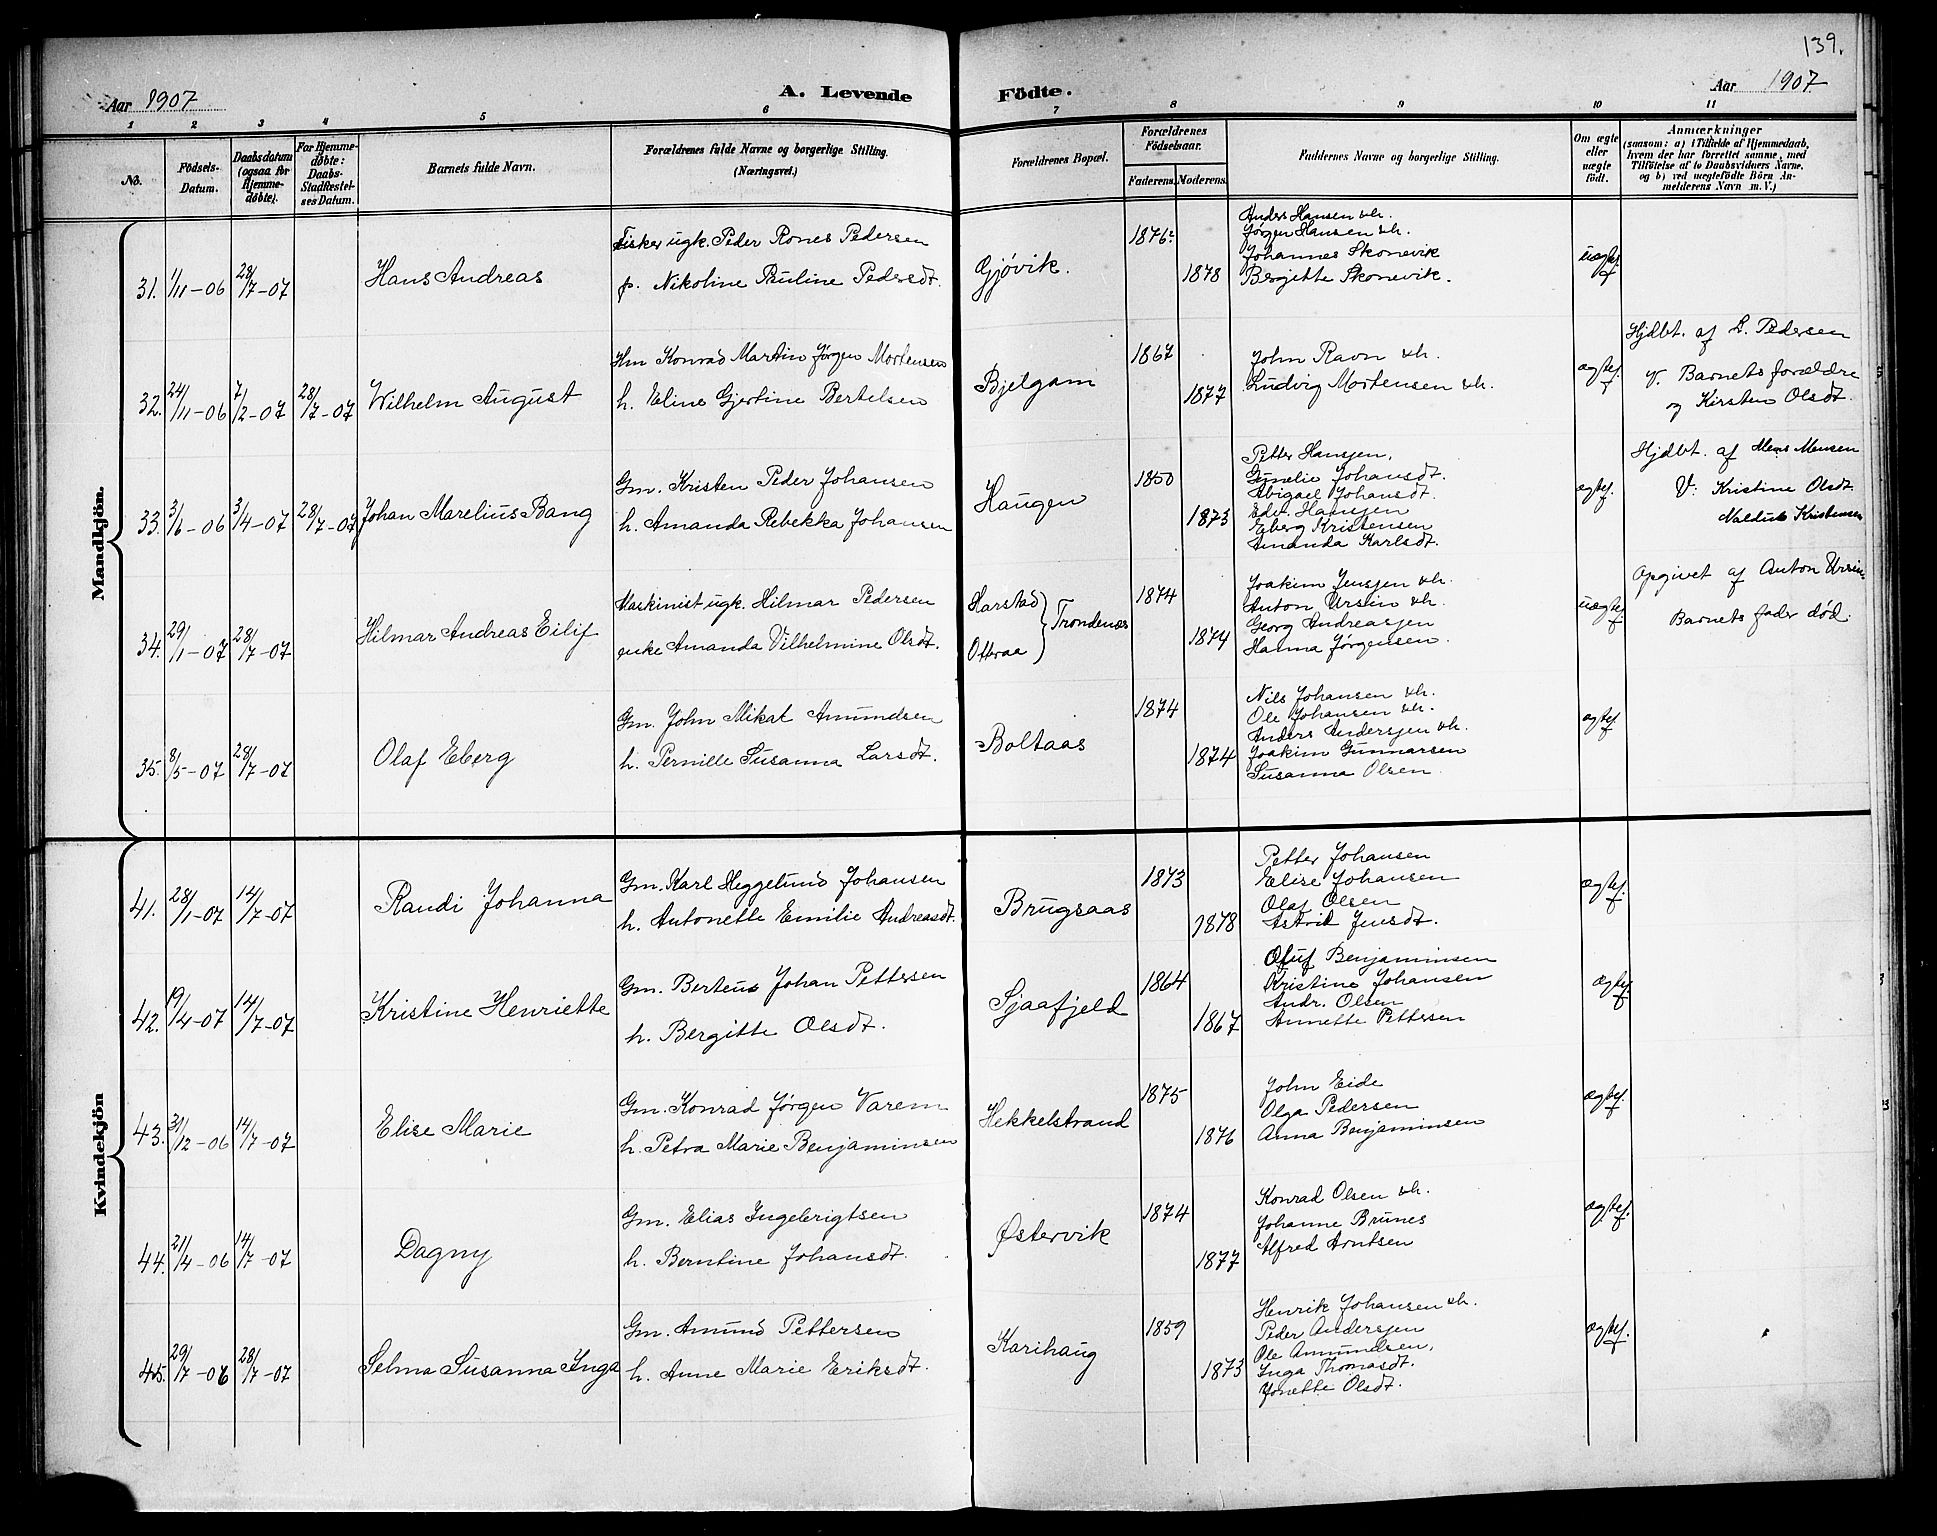 139.
Aar 1907
A. Levende Födte.
Aar 1907
1 2 3 4 5 6 7 8 9 10 11
No.
Födsels-
Datum.
Daabsdatum
(ogsaa for
Hjemme-
döbte).
For Hjemme-
döbte:
Daabs-
Stadfæstel-
ses Datum.
Barnets fulde Navn.
Forældrenes fulde Navne og borgerlige Stilling.
(Næringsvei.)
Forældrenes Bopæl.
Forældrenes
Födselsaar.
Faderens. Moderens.
Faddernes Navne og borgerlige Stilling.
Om ægte
eller
uægte
födt.
Anmærkninger
(saasom: a) i Tilfælde af Hjemmedaab,
hvem der har forrettet samme, med
Tilföielse af to Daabsvidners Navne,
og b) ved uægtefödte Börn An-
melderens Navn m. V.)
Mandkjön.
31. 1/11-06 28/7-07 Hans Andreas
Fisker ugk. Peder Rones Pedersen
p. Nikoline Pauline Pedersdt.
Gjøvik.
1876
1878
Anders Hansen &h.
Jørgen Hansen &h.
Johannes Skonevik
Bergitte Skonevik.
uægtef.
32. 24/11-06 7/2-07 28/7-07 Wilhelm August
Hm Konrad Martin Jørgen Mortensen
h. Eline Gjertine Bertelsen
Bjelgam
1867
1877
John Ravn &h.
Ludvig Mortensen &h.
ægtef.
Hjdbt. af L. Pedersen
V. Barnets forældre
og Kirsten Olsdt.
33. 3/6-06 3/4-07 28/7-07 Johan Marelius Bang
Gm. Kristen Peder Johansen
h. Amanda Rebekka Johansen
Haugen
1850
1873
Petter Hansen,
Johansdt.
Abigael Johansdt.
Edv. Hansen
Eberg Kristensen
Amanda Karlsdt.
ægtef.
Hjdbt. af Mons Monsen
V: Kristine Olsdt
Kristensen
34. 29/1-07 28/7-07 Hilmar Andreas Eilif
Maskinist ugk. Hilmar Pedersen
enke Amanda Vilhelmine Olsdt.
Harstad
Trondenes
Otteraa
1874
1874
Joakim Jensen &h.
Anton Ursin &h.
Georg Andreasen
Hanna Jørgensen.
uægtef.
Opgivet af Anton Ursin.
Barnets fader død.
35. 8/5-07 28/7-07 Olaf Eberg
Gm. John Mikal Amundsen
h. Pernille Susanna Larsdt.
Boltaas
1874
1874
Nils Johansen &h.
Ole Johansen &h.
Anders Andersen &h.
Joakim Gunnarsen
Susanna Olsen
ægtef
Kvindekjön
41. 28/1-07 14/7-07 Randi Johanna
Gm. Karl Heggelund Johansen
h. Antonette Emilie Andreasdt.
Brugsaas
1873
1878
Petter Johansen
Elise Johansen
Olaf Olsen
Astrid Jensdt.
ægtef.
42. 19/4-07 14/7-07 Kristine Henriette
Gm. Berteus Johan Pettersen
h. Bergitte Olsdt.
Sjaafjeld
1864
1867
Oluf Benjaminsen
Kristine Johansen
Andr. Olsen
Annette Pettersen
ægtef.
43. 31/12-06 14/7-07 Elise Marie
Gm. Konrad Jørgen Varem
h. Petra Marie Benjaminsen
Hekkelstrand
1875
1876
John Eide
Olga Pedersen
Anna Benjaminsen
ægtef.
44. 21/4-06 14/7-07 Dagny
Gm. Elias Ingebrigtsen
h. Berntine Johansdt.
Østervik
1874
1877
Konrad Olsen &h.
Johanne Brunes
Alfred Arntsen
ægtef.
45. 29/7-06 28/7-07 Selma Susanna Inga
Gm. Amund Pettersen
h. Anne Marie Eriksdt.
Karihaug
1859
1873
Henrik Johansen &h.
Peder Andersen
Ole Amundsen,
Inga Thomasdt.
Jonette Olsdt.
ægtef.